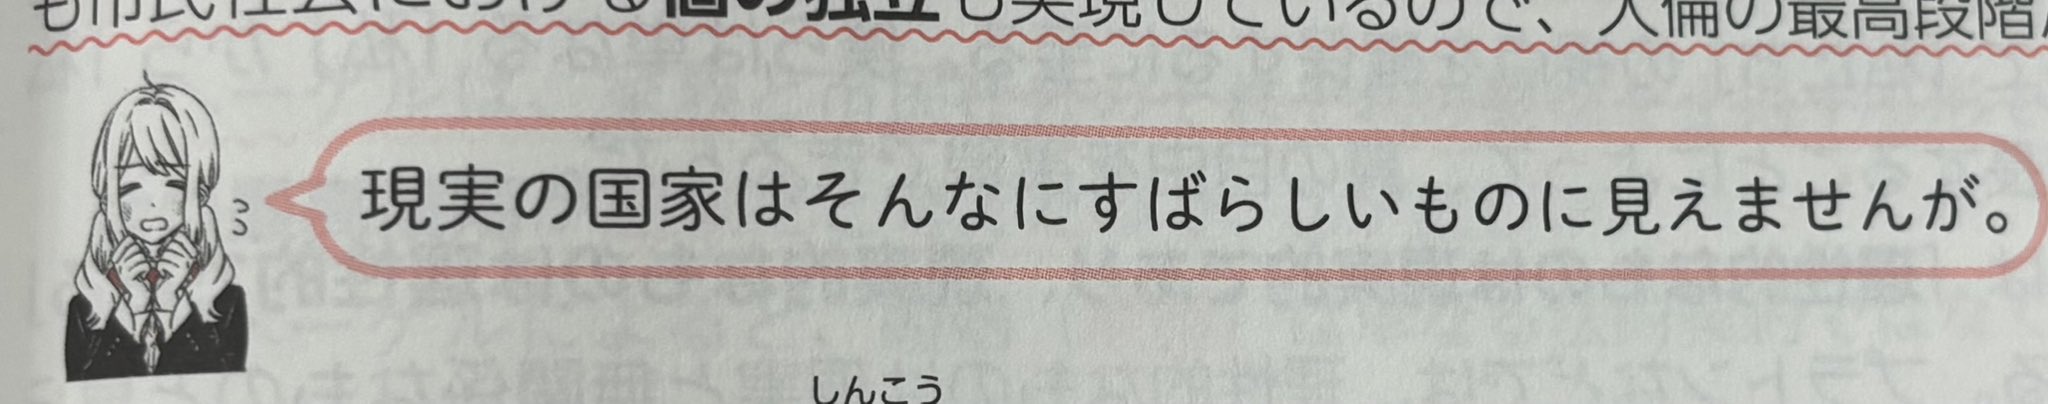 も市民社会における個の独立も実現しているので、人倫の最高段階
現実の国家はそんなにすばらしいものに見えませんが。
しんこう